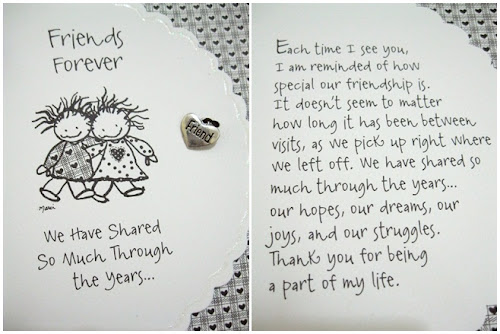 Friends
Forever
Friend
We Have Shared
So Much Through
the Years...
Each time I see you,
I am reminded of how
special our friendship is.
It doesn't seem to matter
how long it has been between
visits, as we pick up right where
we left off. We have shared so
much through the years...
our hopes, our dreams, our
joys, and our struggles.
Thank you for being
a part of my life.